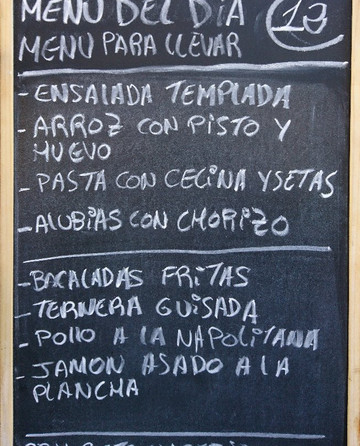 MENU DEL DiA 13
MENU PARA LLEVAR
- ENSALADA TEMPLADA
- ARROZ CON PISTO Y
HUEVO
- PASTA CON CECINA Y SETAS
- ALUBiAS CON CHORiZO
- BACALADAS FRiTAS
- TERNERA GUiSADA
- POLLO A LA NAPOLiTANA
- JAMON ASADO A LA
PLANCHA